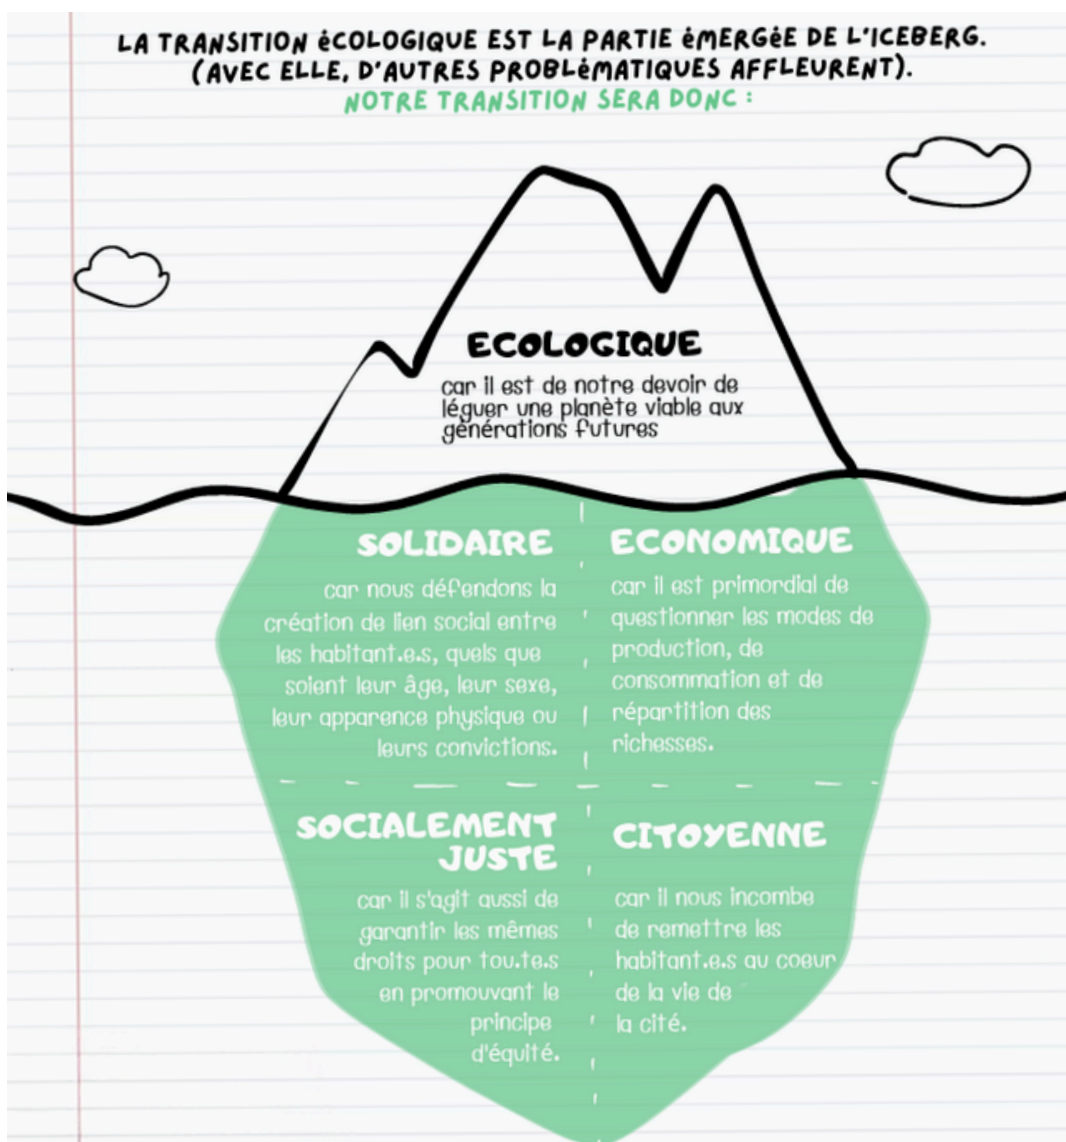 LA TRANSITION éCOLOGIQUE EST LA PARTIE éMERGéE DE L'ICEBERG.
(AVEC ELLE, D'AUTRES PROBLéMATIQUES AFFLEURENT).
NOTRE TRANSITION SERA DONC :
ECOLOGIQUE
car il est de notre devoir de
léguer une planète viable aux
générations futures
SOLIDAIRE
car nous défendons la
création de lien social entre
les habitant.e.s, quels que
soient leur âge, leur sexe,
leur apparence physique ou
leurs convictions.
ECONOMIQUE
car il est primordial de
questionner les modes de
production, de
consommation et de
répartition des
richesses.
SOCIALEMENT
JUSTE
car il s'agit aussi de
garantir les mêmes
droits pour tou.te.s
en promouvant le
principe
d'équité.
CITOYENNE
car il nous incombe
de remettre les
habitant.e.s au coeur
de la vie de
la cité.